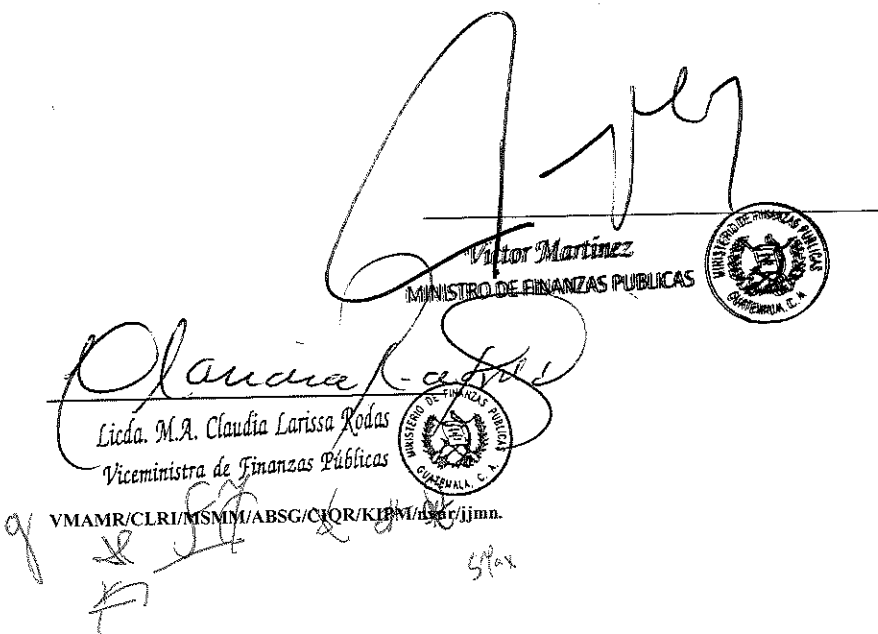 Victor Martinez
MINISTRO DE FINANZAS PUBLICAS
MINISTERIO DE FINANZAS PUBLICAS
GUATEMALA, C. A.
Licda. M.A. Claudia Larissa Rodas
Viceministra de Finanzas Públicas
MINISTERIO DE FINANZAS PUBLICAS
GUATEMALA, C. A.
VMAMR/CLRI/MSMM/ABSG/CIQR/KIPM/ /jjmn.